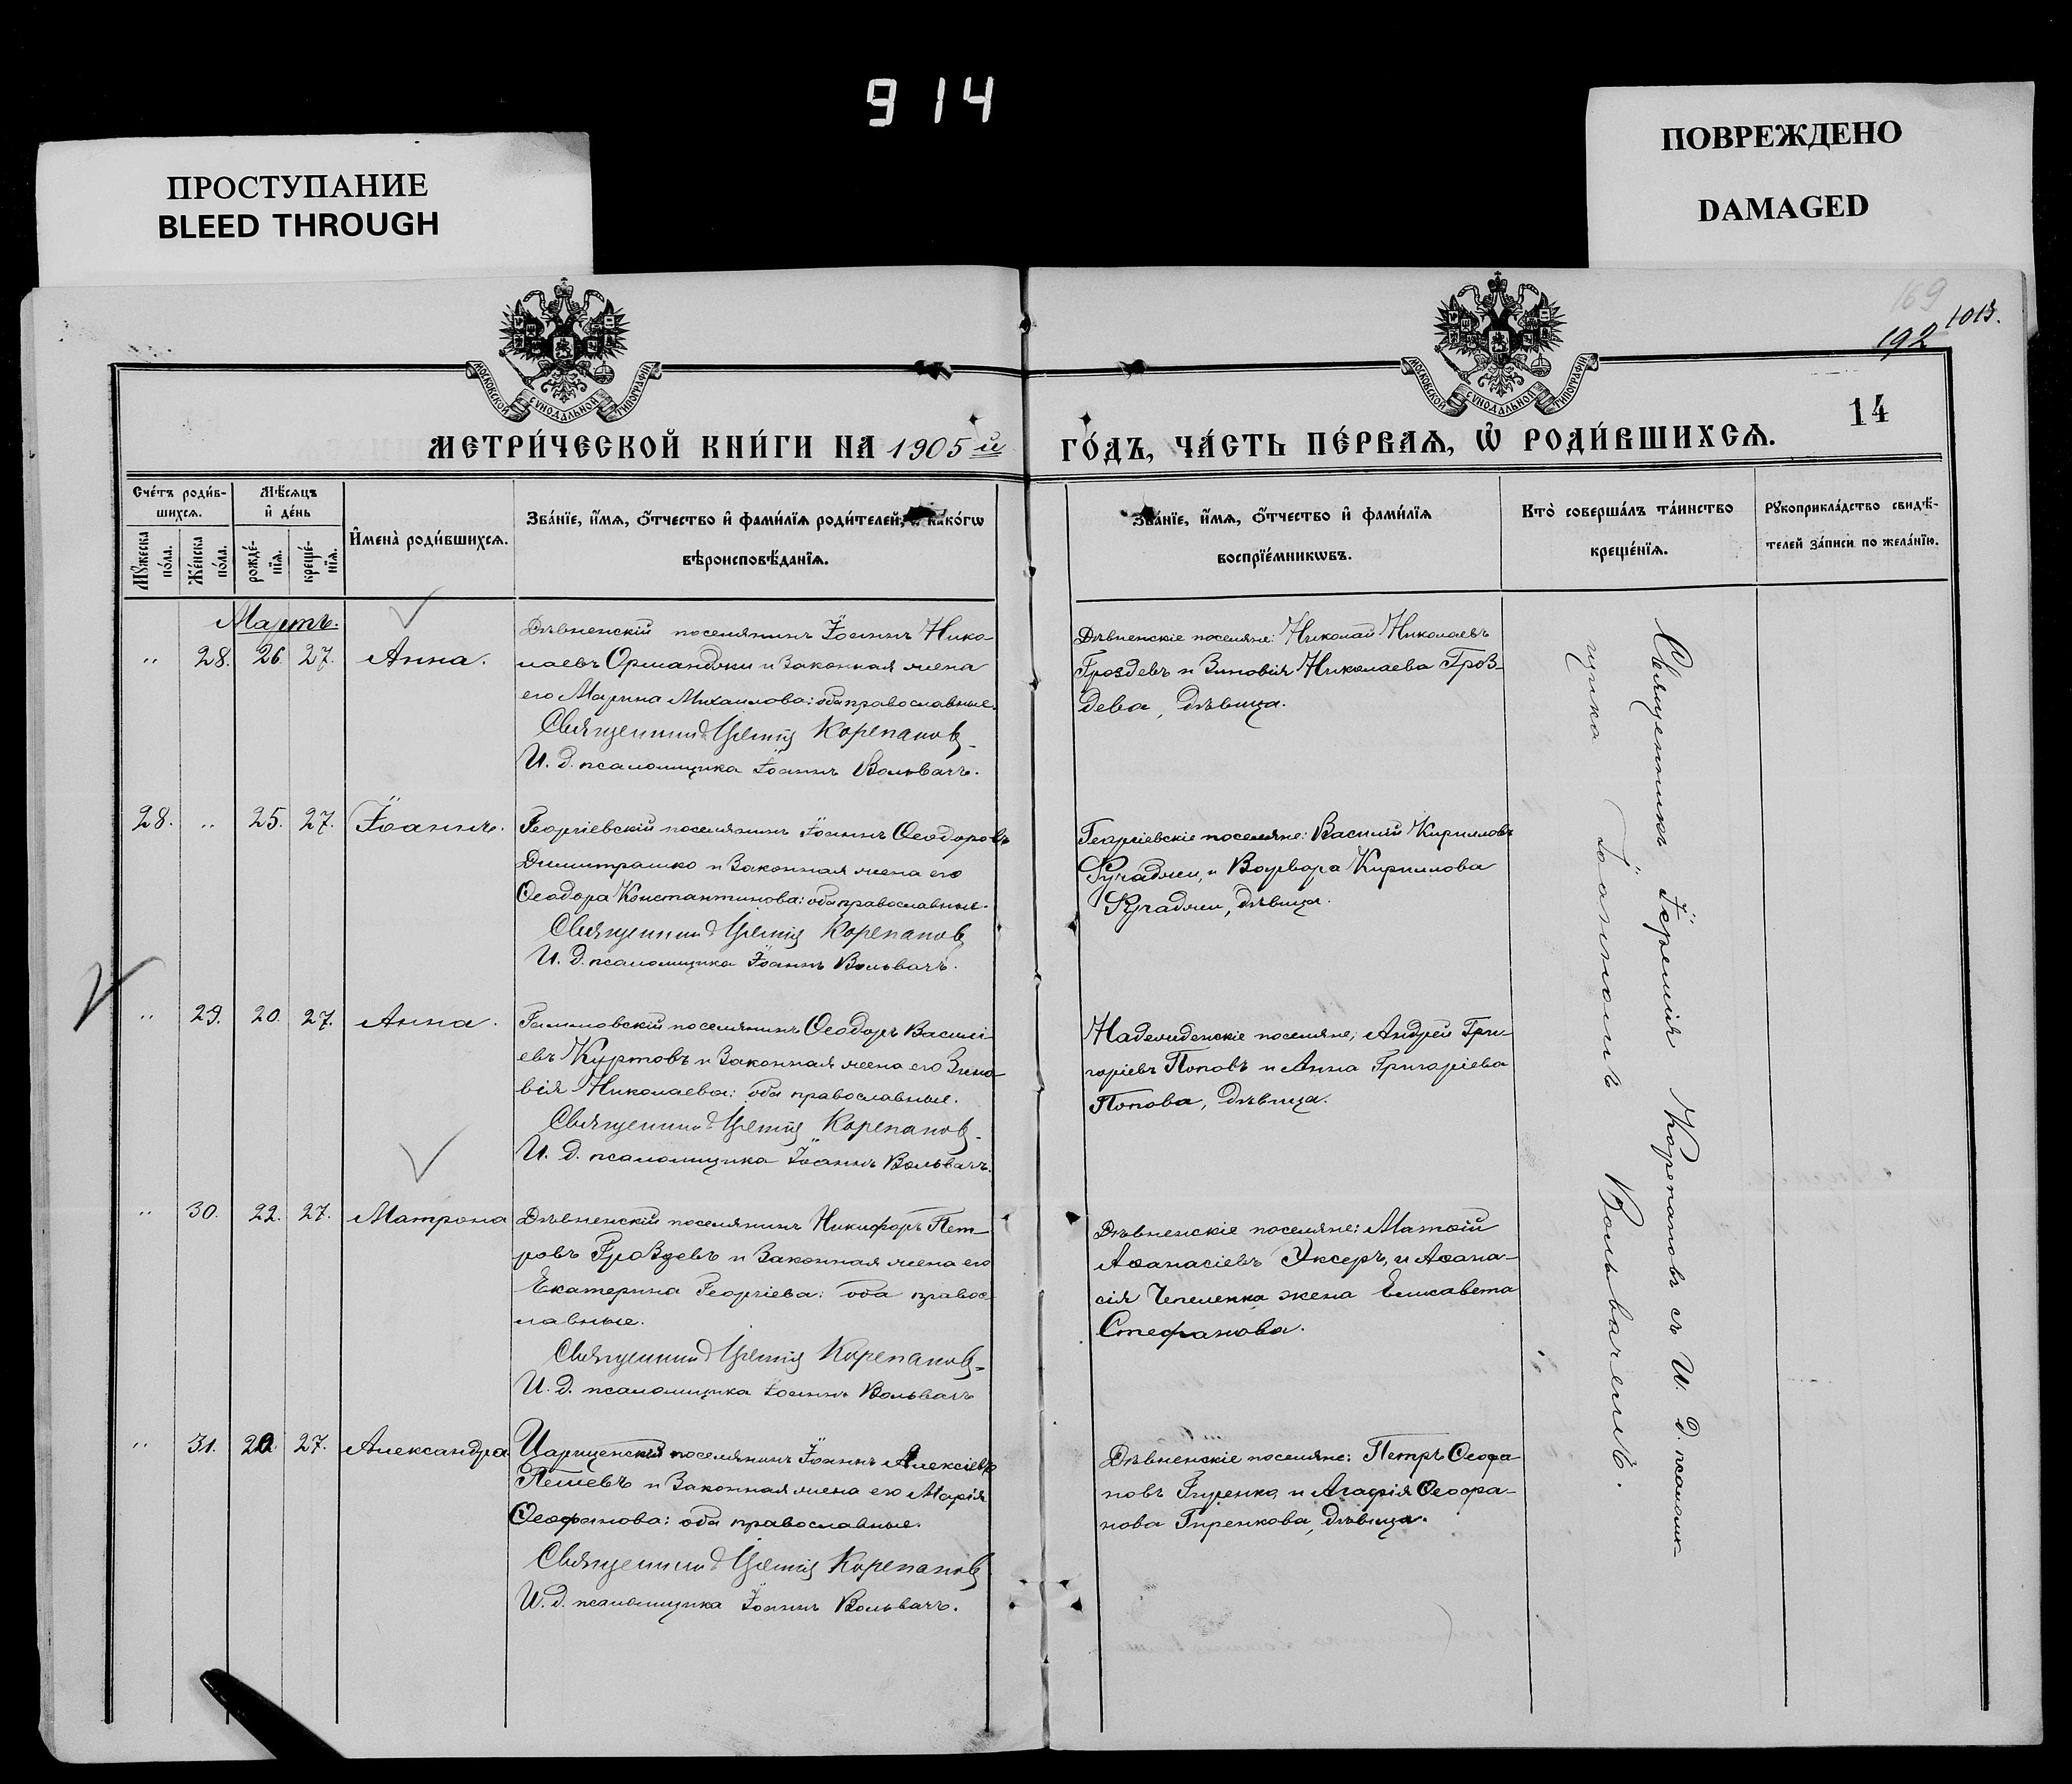 914
ПРОСТУПАНИЕ
BLEED THROUGH
ПОВРЕЖДЕНО
DAMAGED
169
192 1013.
14
МОСКОВСКОЙ СѴНОДАЛЬНОЙ ТИПОГРАФІИ
МОСКОВСКОЙ СѴНОДАЛЬНОЙ ТИПОГРАФІИ
МЕТРИ́ЧЕСКОЙ КНИ́ГИ НА 1905й ГО́ДЪ, ЧА́СТЬ ПЕ́РВАѦ, Ѽ РОДИ́ВШИХСѦ.
Сче́тъ роди́в-
шихсѧ.
Мѣ́сѧцъ
и҆ де́нь
Мꙋжеска по́ла.
Же́нска по́ла.
рожде́-
нїѧ.
креще́-
нїѧ.
И҆мена̀ роди́вшихсѧ.
Зва́нїе, и҆́мѧ, ѻ҆́тчество и҆ фами́лїѧ роди́телей, и҆ како́гѡ
вѣроисповѣ́данїѧ.
Зва́нїе, и҆́мѧ, ѻ҆́тчество и҆ фами́лїѧ
воспрїе́мникѡвъ.
Кто̀ соверша́лъ та́инство
креще́нїѧ.
Рꙋкоприкла́дство свидѣ́-
телей за́писи по жела́нїю.
Мартъ.
„ 28. 26. 27. Анна.
Дѣвненскій поселянинъ Іоаннъ Нико-
лаевъ Орманджи и законная жена
его Марина Михаилова: оба православные.
Священникъ Іеремія Корепановъ
И. д. псаломщика Іоаннъ Вольвачъ.
Дѣвненскіе поселяне: Николай Николаевъ
Гроздевъ и Зиновія Николаева Гроз-
дева, дѣвица.
28. „ 25. 27. Іоаннъ.
Георгіевскій поселянинъ Іоаннъ Ѳеодоровъ
Димитрашко и законная жена его
Ѳеодора Константинова: оба православные.
Священникъ Іеремія Корепановъ
И. д. псаломщика Іоаннъ Вольвачъ.
Георгіевскіе поселяне: Василій Кирилловъ
и Варвара Кириллова
дѣвица.
„ 29. 20. 27. Анна.
поселянинъ Ѳеодоръ Василі-
евъ Куртовъ и законная жена его Зино-
вія Николаева: оба православные.
Священникъ Іеремія Корепановъ
И. д. псаломщика Іоаннъ Вольвачъ.
поселяне; Андрей Гри-
горіевъ Поповъ и Анна Григоріева
Попова, дѣвица.
„ 30. 22. 27. Матрона
Дѣвненскій поселянинъ Никифоръ Пет-
ровъ Гроздевъ и законная жена его
Екатерина Георгіева: оба правос-
лавные.
Священникъ Іеремія Корепановъ
И. д. псаломщика Іоаннъ Вольвачъ
Дѣвненскіе поселяне: Матѳій
Аѳанасіевъ Уксеръ, и Аѳана-
сія Чепеленка жена Елисавета
Стефанова.
„ 31. 22. 27. Александра
поселянинъ Іоаннъ Алексіевъ
Пешевъ и законная жена его Марія
Ѳеофанова: оба православные.
Священникъ Іеремія Корепановъ
И. д. псаломщика Іоаннъ Вольвачъ.
Дѣвненскіе поселяне: Петръ Ѳеофа-
новъ Гиренко и Агафія Ѳеофа-
нова Гиренкова, дѣвица.
Священникъ Іеремія Корепановъ съ И. д. псалом-
щика Іоанномъ Вольвачемъ.